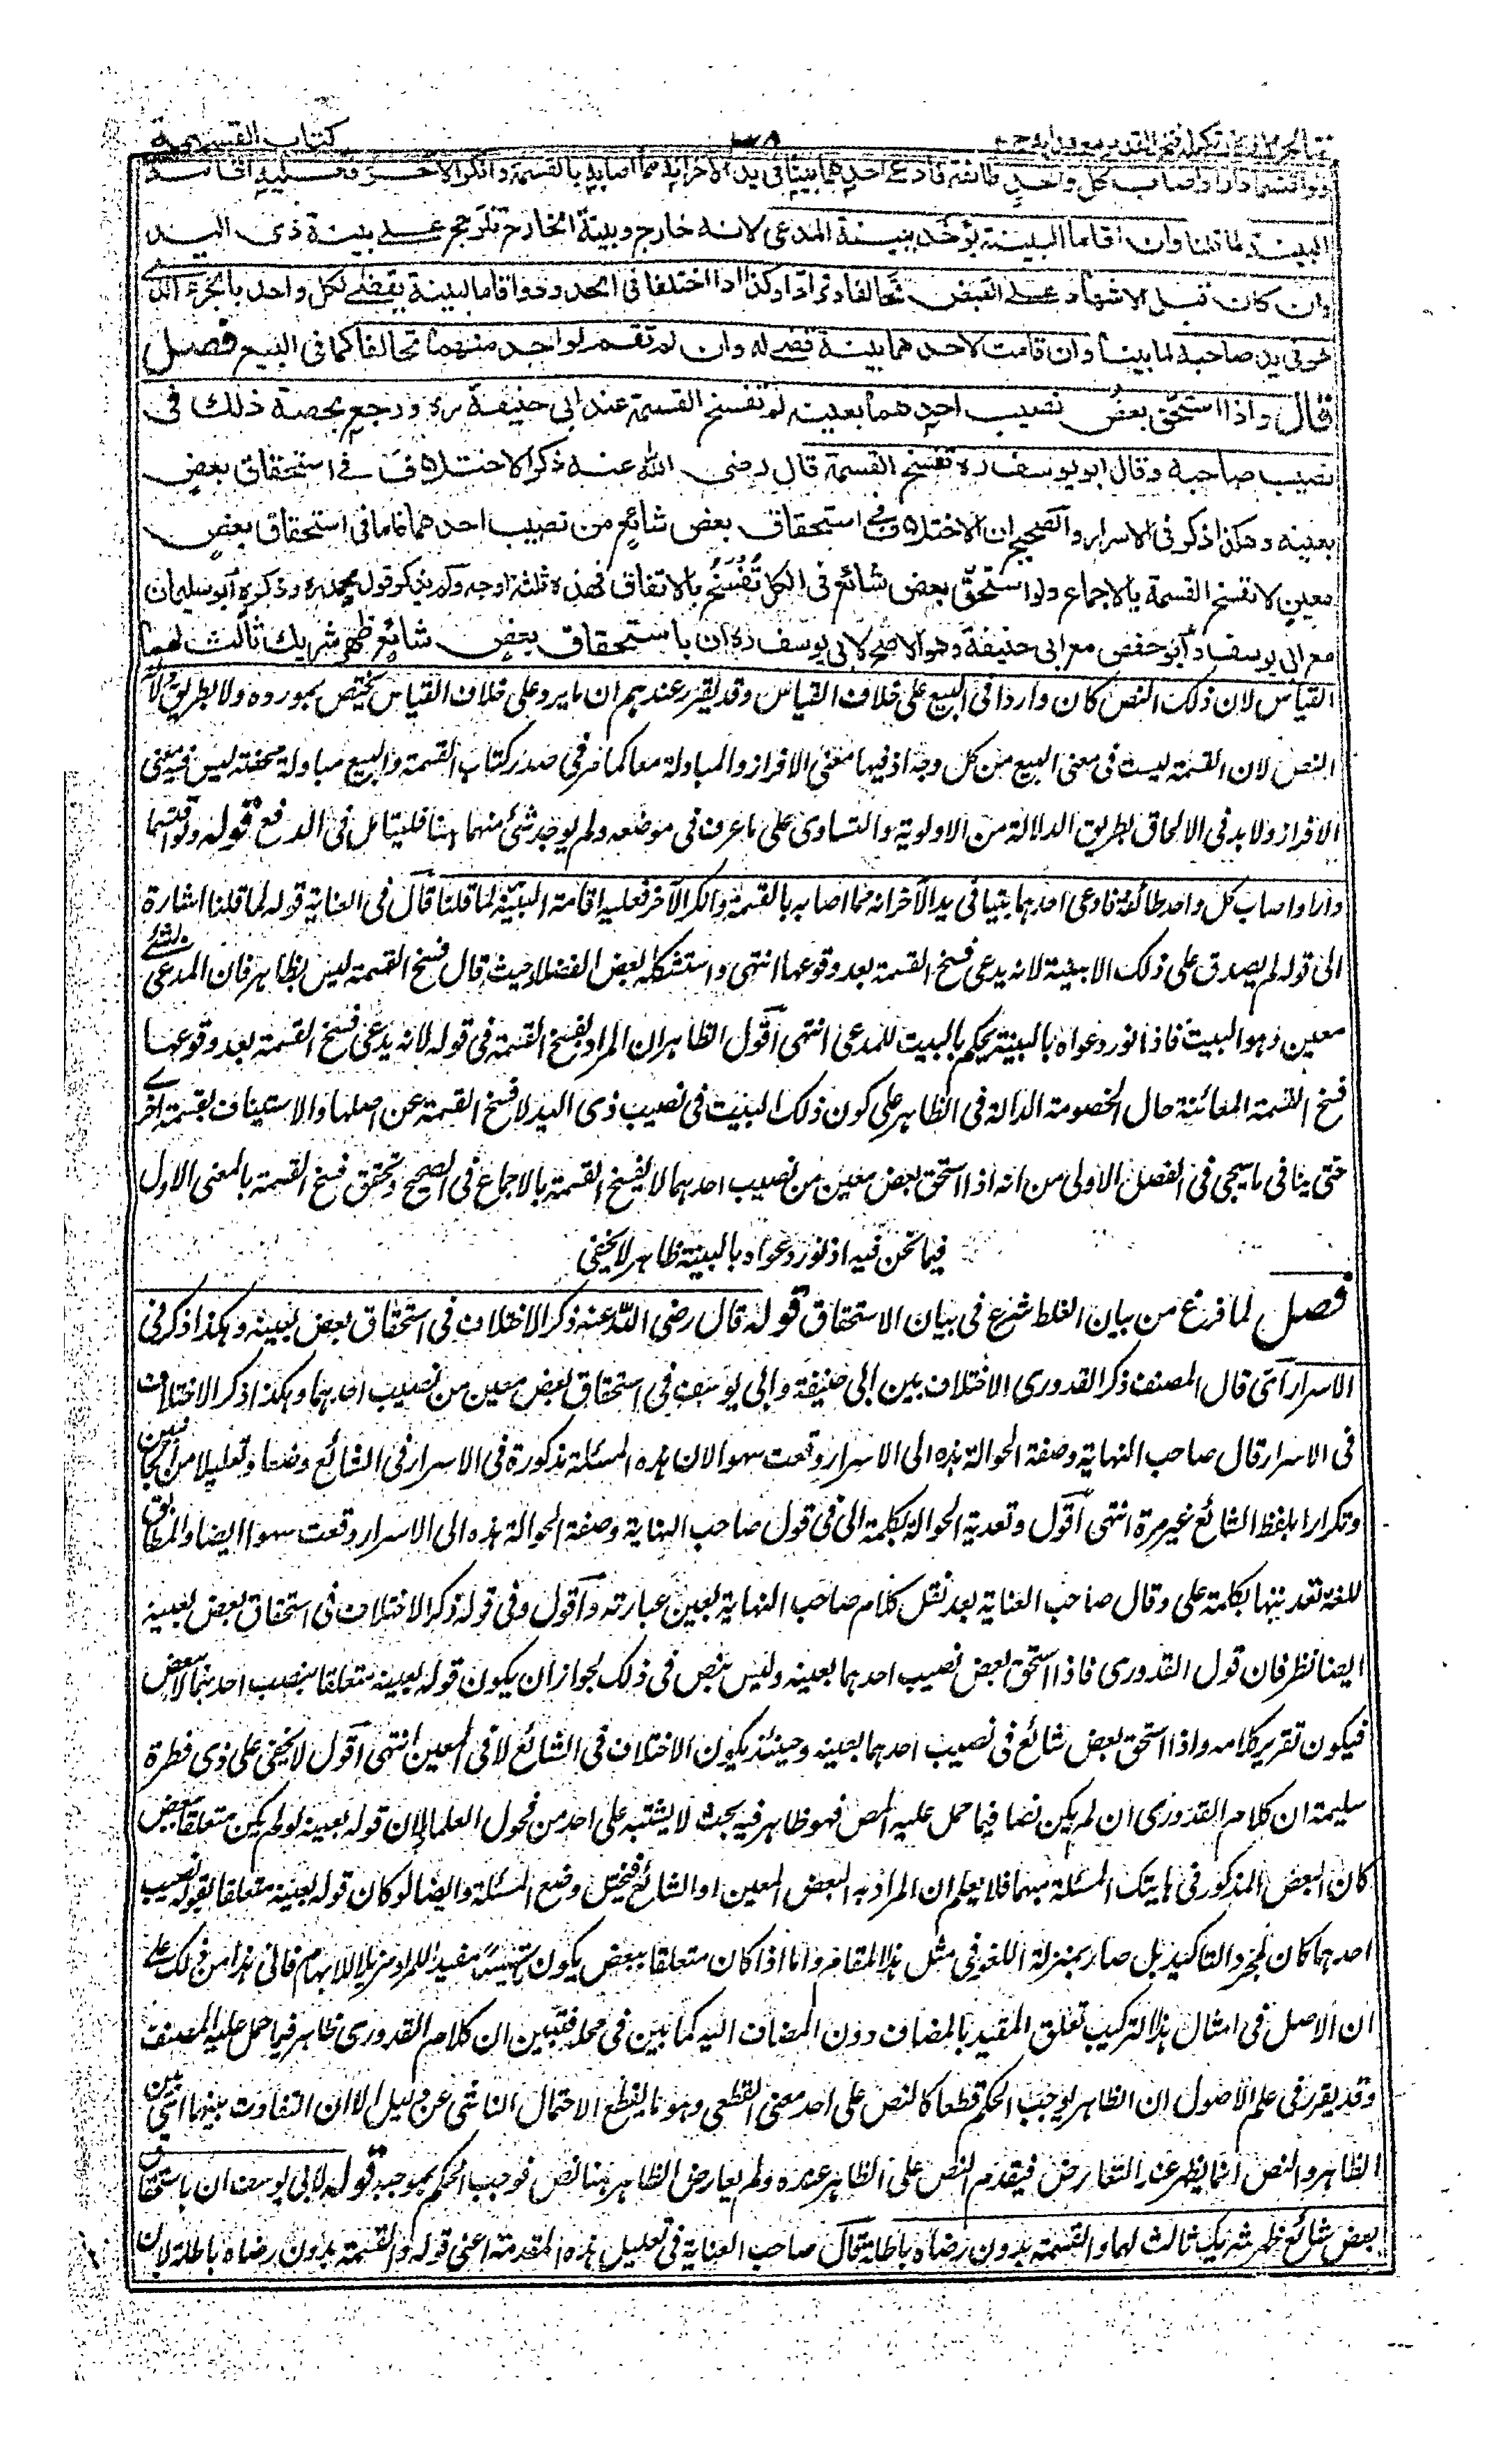 نتائج الافكار تكملة فتح القدير مع هداية ج ٤
٣٨
كتاب القسمة
ولو اقتسما دارا واصاب كل واحد طائفة فادعى احدهما بيتا فى يد الآخر انه مما اصابه بالقسمة وانكر الآخر فعليه اقامة
البينة لما قلنا وان اقاما البينة يؤخذ ببينة المدعى لانه خارج وبينة الخارج تترجح على بينة ذى اليد
وان كان قبل الاشهاد على القبض تحالفا وترادا وكذا اذا اختلفا فى الحدود واقاما البينة يقضى لكل واحد بالجزء الذى
هو فى يد صاحبه لما بينا وان قامت لاحدهما بينة قضى له وان لم تقم لواحد منهما تحالفا كما فى البيع فصل
قال واذا استحق بعض نصيب احدهما بعينه لم تفسخ القسمة عند ابى حنيفة ره ورجع بحصة ذلك فى
نصيب صاحبه وقال ابو يوسف ره تفسخ القسمة قال رضى الله عنه ذكر الاختلاف فى استحقاق بعض
بعينه وهكذا ذكر فى الاسرار والصحيح ان الاختلاف فى استحقاق بعض شائع من نصيب احدهما فاما فى استحقاق بعض
معين لا تفسخ القسمة بالاجماع ولو استحق بعض شائع فى الكل تفسخ بالاتفاق فهذه ثلثة اوجه ولم يذكر قول محمد ره وذكره ابو سليمان
مع ابى يوسف وابو حفص مع ابى حنيفة وهو الاصح لابى يوسف ره ان باستحقاق بعض شائع ظهر شريك ثالث لهما
القياس لان ذلك النص كان واردا فى البيع على خلاف القياس وقد تقرر عندهم ان ما يرد على خلاف القياس يختص بمورده ولا بطريق دلالة
النص لان القسمة ليست فى معنى البيع من كل وجه اذ فيها معنى الافراز والمبادلة معا كما مر فى صدر كتاب القسمة والبيع مبادلة محضة ليس فيه معنى
الافراز ولا بد فى الالحاق بطريق الدلالة من الاولوية والتساوى على ما عرف فى موضعه ولم يوجد شئ منهما ههنا فليتامل فى الدفع قوله ولو اقتسما
دارا واصاب كل واحد طائفة فادعى احدهما بيتا فى يد الآخر انه مما اصابه بالقسمة وانكر الآخر فعليه اقامة البينة لما قلنا قال فى العناية قوله لما قلنا اشارة
الى قوله لم يصدق على ذلك الا ببينة لانه يدعى فسخ القسمة بعد وقوعها انتهى واستشكله بعض الفضلاء حيث قال فسخ القسمة ليس بظاهر فان المدعى لشئ
معين وهو البيت فاذا نور دعواه بالبينة يحكم بالبيت للمدعى انتهى اقول الظاهر ان المراد بفسخ القسمة فى قوله لانه يدعى فسخ القسمة بعد وقوعها
فسخ القسمة المعائنة حال الخصومة الدالة فى الظاهر على كون ذلك البيت فى نصيب ذى اليد لا فسخ القسمة عن اصلها والاستيناف بقسمة اخرى
حتى ينافى ما سيجئ فى الفصل الاولى من انه اذا استحق بعض معين من نصيب احدهما لا يفسخ القسمة بالاجماع فى الصحيح وتحقق فسخ القسمة بالمعنى الاول
فيما نحن فيه اذ نور دعواه بالبينة ظاهر لا يخفى
فصل لما فرغ من بيان الغلط شرع فى بيان الاستحقاق قوله قال رضى الله عنه ذكر الاختلاف فى استحقاق بعض بعينه وهكذا ذكر فى
الاسرار آه قال المصنف ذكر القدورى الاختلاف بين ابى حنيفة وابى يوسف فى استحقاق بعض معين من نصيب احدهما وهكذا ذكر الاختلاف
فى الاسرار قال صاحب النهاية وصفة الحوالة هذه الى الاسرار وقعت سهوا لان هذه المسئلة مذكورة فى الاسرار فى الشائع وضعا وتعليلا من الجانبين
وتكرارا بلفظ الشائع غير مرة انتهى اقول وتعدية الحوالة بكلمة الى فى قول صاحب النهاية وصفة الحوالة هذه الى الاسرار وقعت سهوا ايضا والمطابق
للغة تعديتها بكلمة على وقال صاحب العناية بعد نقل كلام صاحب النهاية بعين عبارته واقول وفى قوله ذكر الاختلاف فى استحقاق بعض بعينه
ايضا نظر فان قول القدورى فاذا استحق بعض نصيب احدهما بعينه وليس بنص فى ذلك لجواز ان يكون قوله بعينه متعلقا بنصيب احدهما لا ببعض
فيكون تقرير كلامه واذا استحق بعض شائع فى نصيب احدهما بعينه وحينئذ يكون الاختلاف فى الشائع لا فى المعين انتهى اقول لا يخفى على ذى فطرة
سليمة ان كلام القدورى ان لم يكن نصا فيما حمل عليه المص فهو ظاهر فيه بحيث لا يشتبه على احد من فحول العلماء لان قوله بعينه لو لم يكن متعلقا ببعض
كان البعض المذكور فى هاتيك المسئلة مبهما فلا يعلم ان المراد به البعض المعين او الشائع فيختل وضع المسئلة وايضا لو كان قوله بعينه متعلقا بقوله نصيب
احدهما كان لمجرد التاكيد بل صار بمنزلة اللغو فى مثل هذا المقام واما اذا كان متعلقا ببعض يكون مفيدا للمراد مزيلا للابهام فانى هذا من ذلك على
ان الاصل فى امثال هذا التركيب تعلق المقيد بالمضاف دون المضاف اليه كما بين فى محله فتبين ان كلام القدورى ظاهر فيما حمل عليه المصنف
وقد يقرر فى علم الاصول ان الظاهر يوجب الحكم قطعا كالنص على احد معنى القطعى وهو ما يقطع الاحتمال الناشى عن دليل الا ان التفاوت بينهما اى بين
الظاهر والنص انما يظهر عند التعارض فيقدم النص على الظاهر عنده ولم يعارض الظاهر هنا نص فوجب الحكم بموجبه قوله لابى يوسف ان باستحقاق
بعض شائع ظهر شريك ثالث لهما والقسمة بدون رضاه باطلة قال صاحب العناية فى تعليل هذه المقدمة اعنى قوله والقسمة بدون رضاه باطلة لان